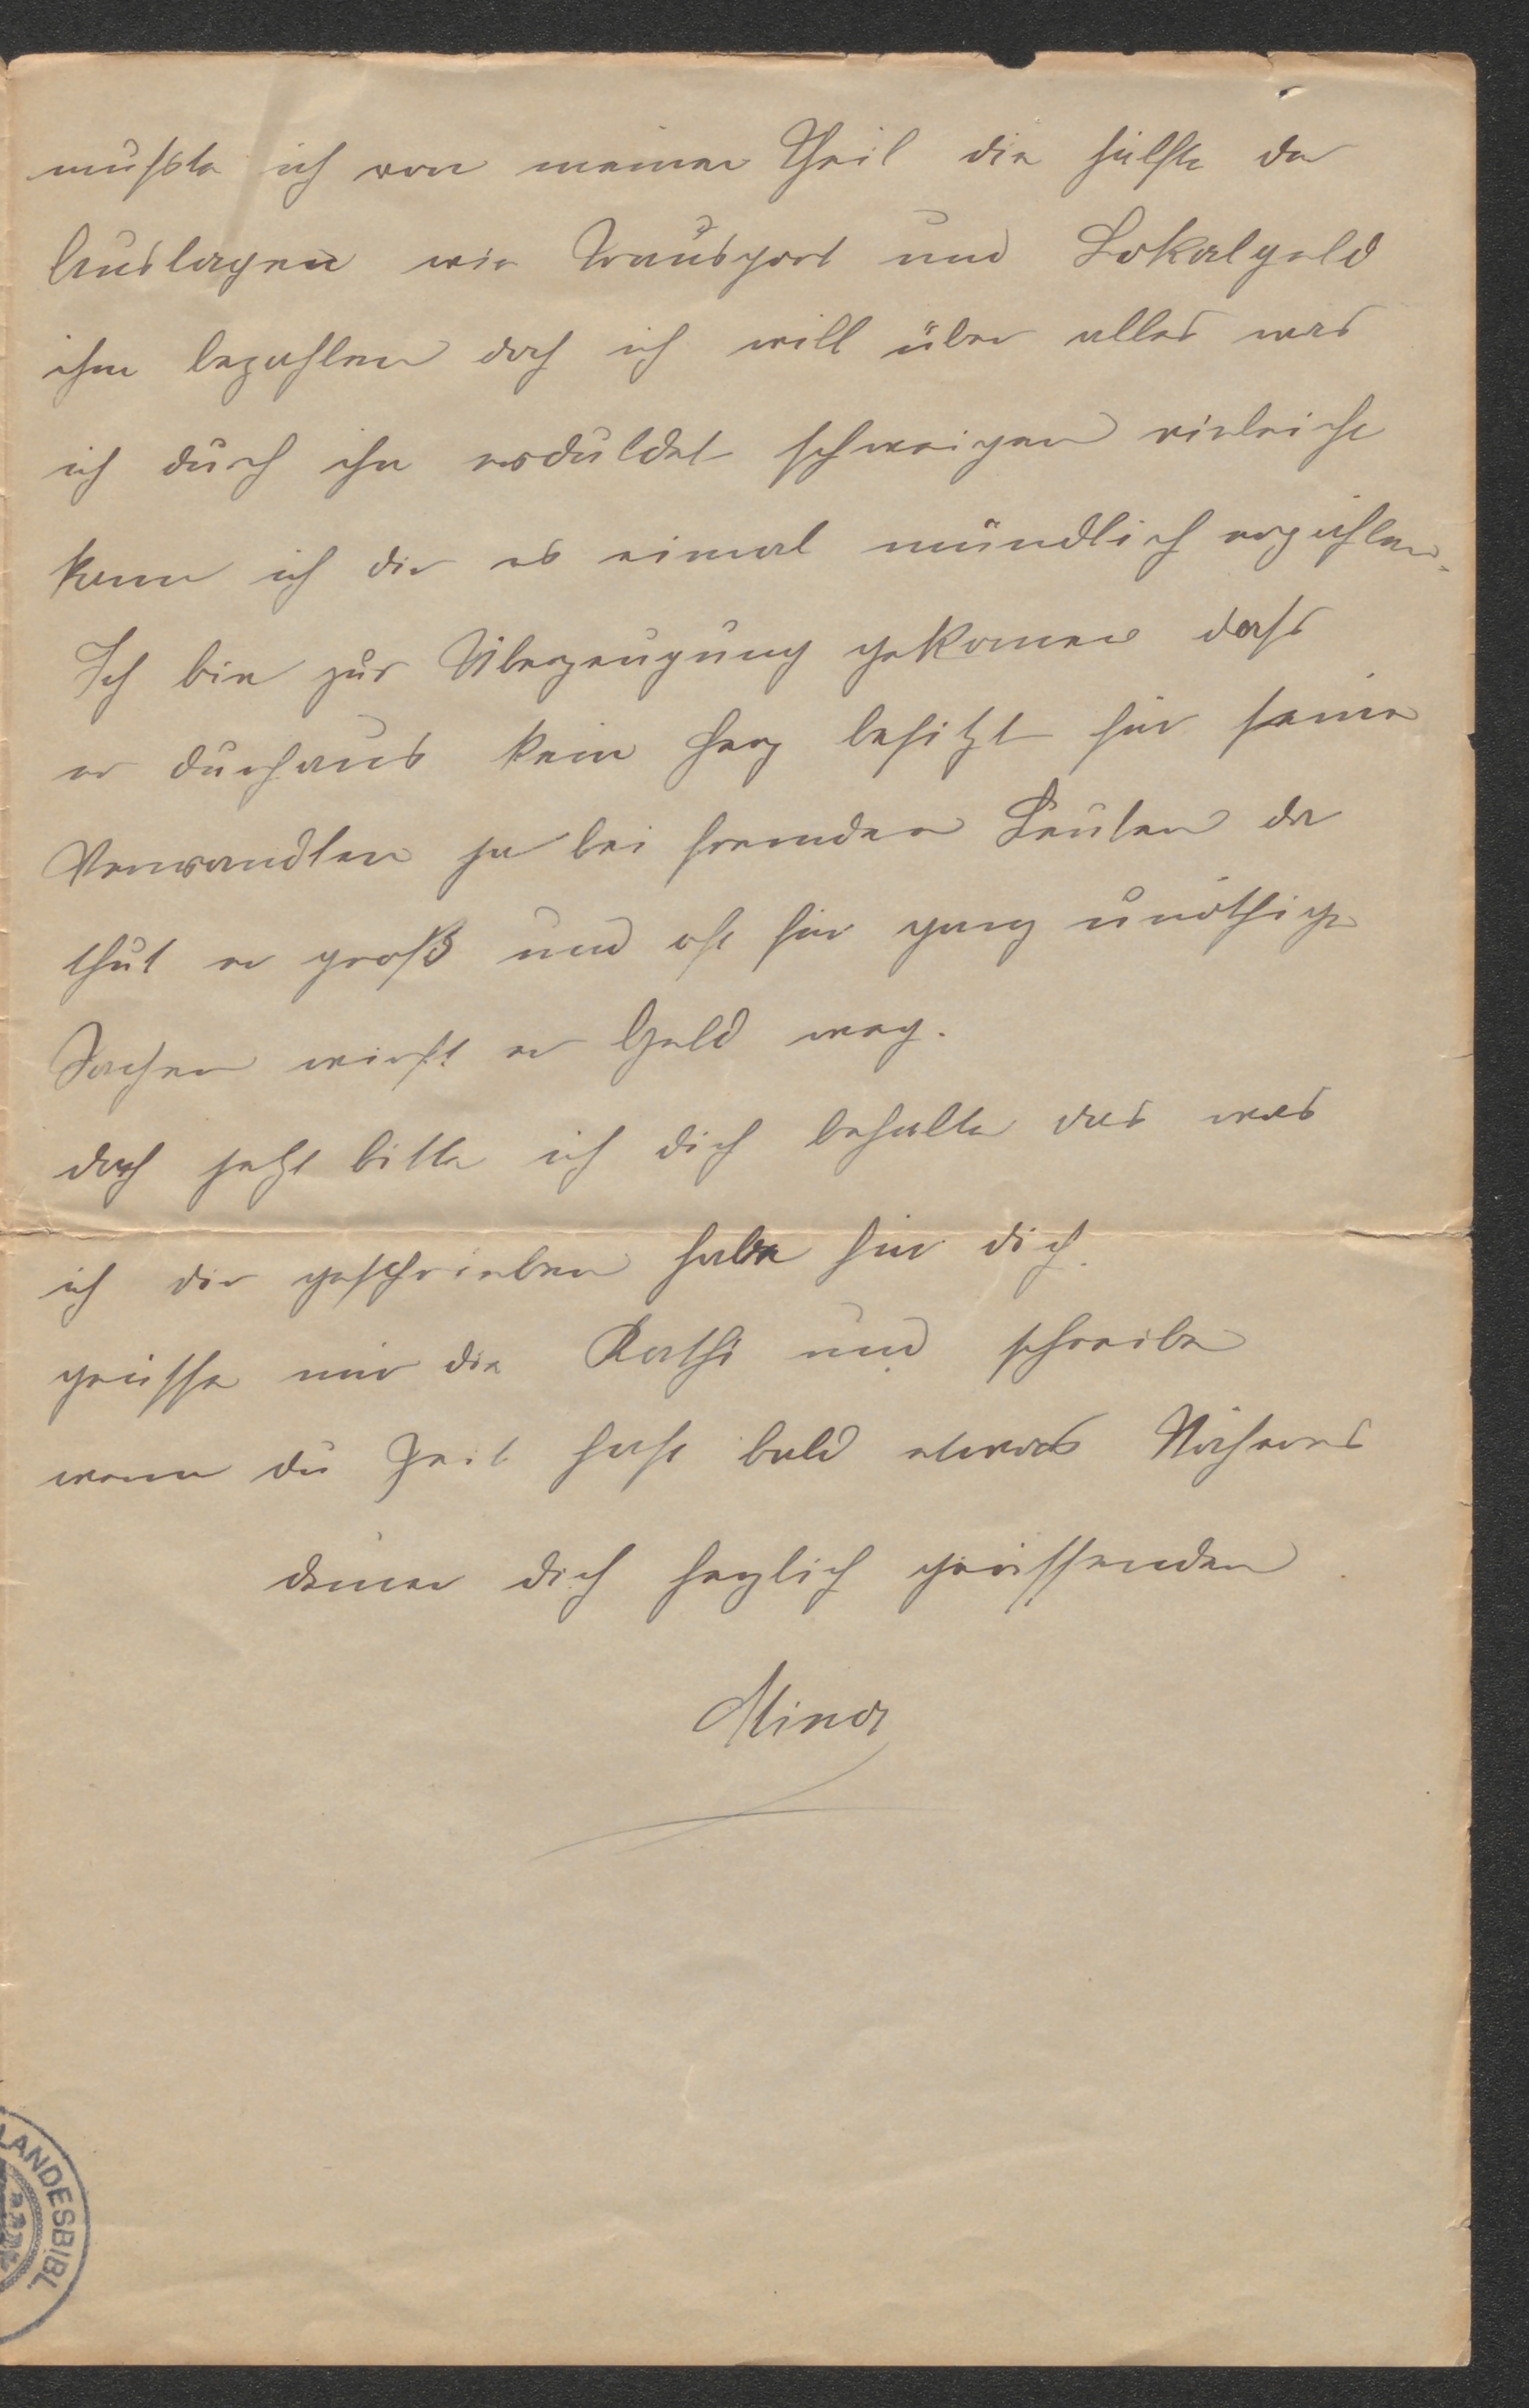 mußte ich von meinen Theil die hälfte der
Auslagen wie Transport und Lokalgeld
ihm bezahlen doch ich will über alles was
ich durch ihn erduldet schweigen vieleicht
kann ich dir es einmal mündlich erzählen.
Ich bin zur Überzeugung gekomen dass
er durchaus kein Herz besitzt für seine
Verwandten ja bei fremden Leuten da
thut er groß und oft für ganz unöthige
Sachen wirft er Geld weg.
doch jetzt bitte ich dich behalte das was
ich dir geschrieben habe für dich.
grüsse mir die Kathi und schreibe
wenn du Zeit hast bald etwas Näheres
deiner dich herzlich grüssenden
Mina
LANDESBIBL